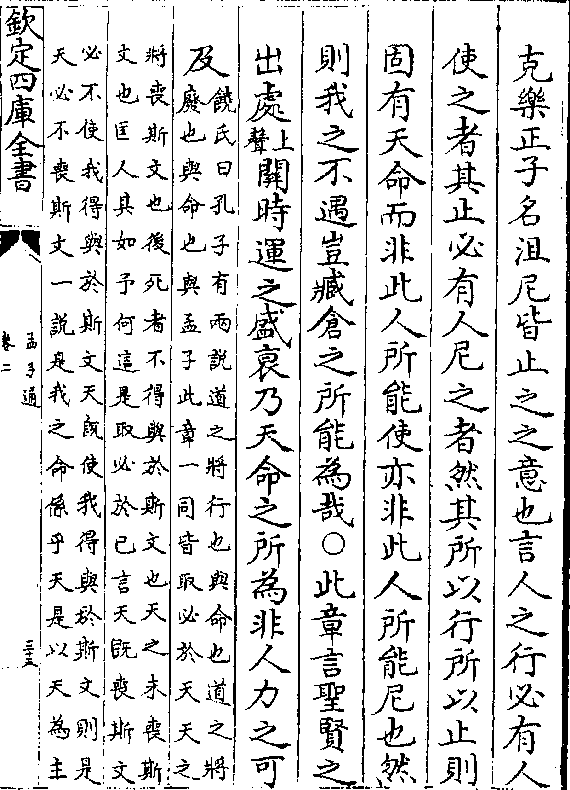 克樂正子名沮尼皆止之之意也言人之行必有人
使之者其止必有人尼之者然其所以行所以止則
固有天命而非此人所能使亦非此人所能尼也然
則我之不遇豈臧倉之所能為哉○此章言聖賢之
出處上聲關時運之盛衰乃天命之所為非人力之可
及饒氏曰孔子有兩說道之將行也與命也道之將
廢也與命也與孟子此章一同皆取必於天天之
將喪斯文也後死者不得與於斯文也天之未喪斯
文也匡人其如予何這是取必於已言天旣喪斯文
必不使我得與於斯文天旣使我得與於斯文則是
天必不喪斯文一說是我之命係乎天是以天為主
欽定四庫全書
孟子通
卷二